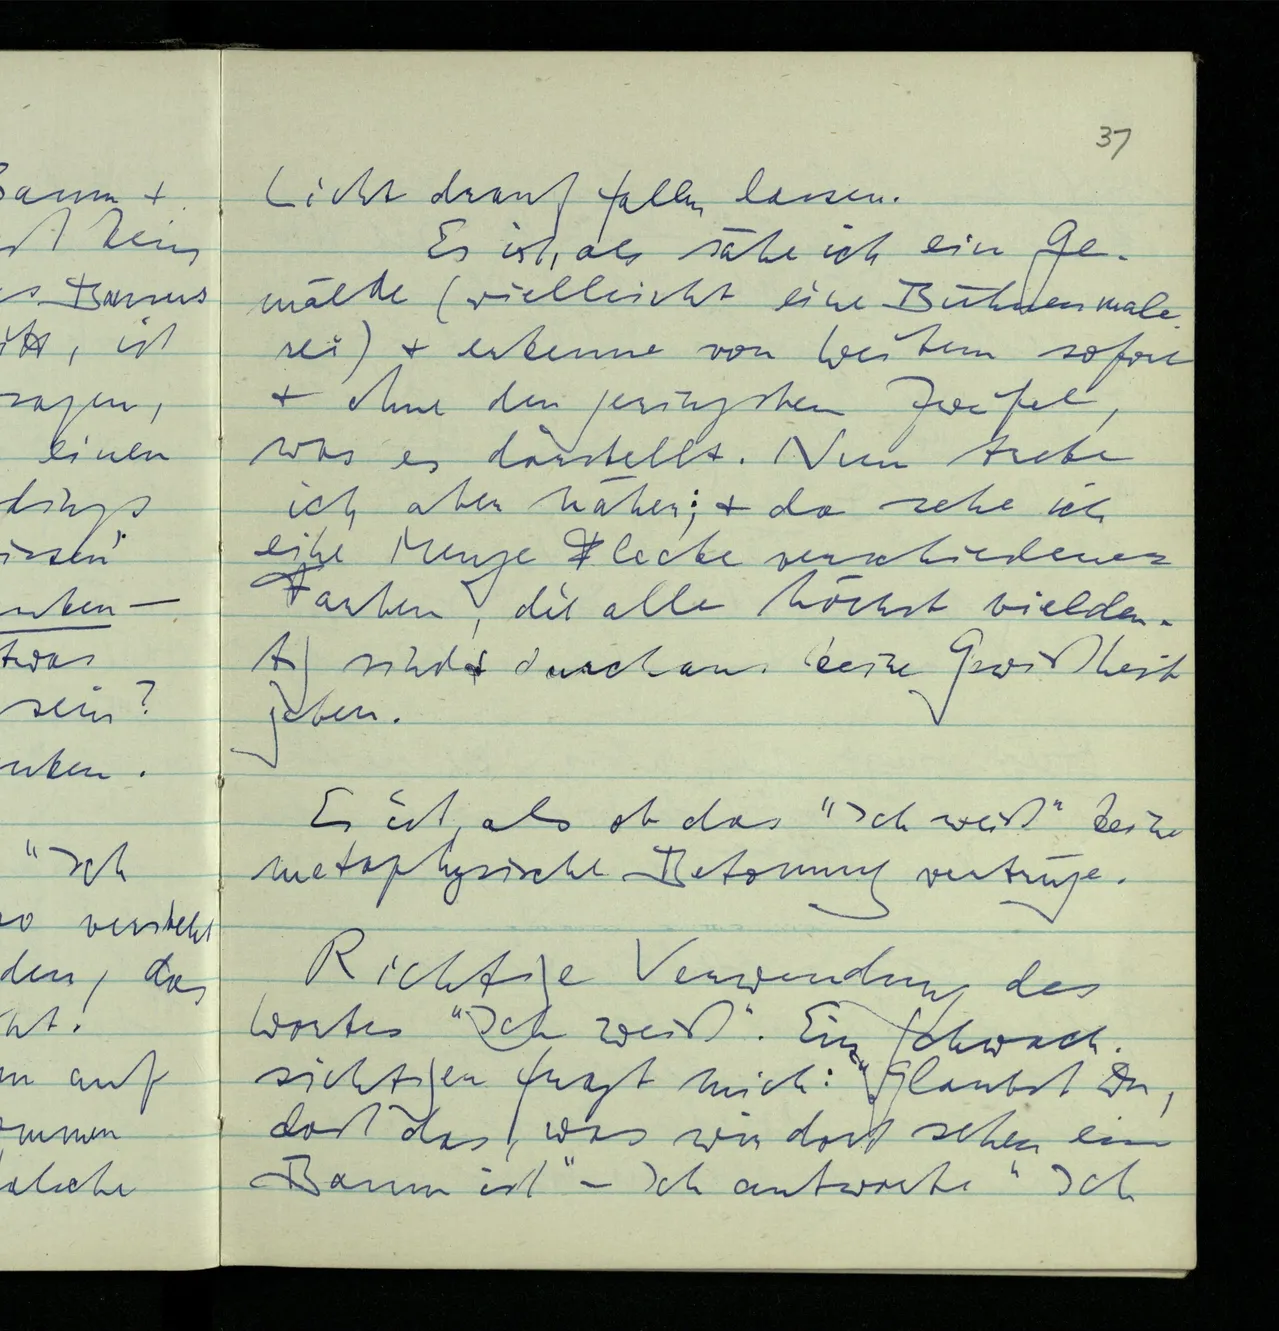 37
Baum +
kein
Baumes
, ist
sagen,
einen
dings
wissen"
etwas
sein?
"Ich
so versteht
den, das
auf
kommen
falsche
Licht drauf fallen lassen.
Es ist, als sähe ich ein Ge-
mälde (vielleicht eine Bühnenmale-
rei) + erkenne von Weitem sofort
+ ohne den geringsten Zweifel,
was es darstellt. Nun trete
ich aber näher; + da sehe ich
eine Menge Flecke verschiedener
Farben, die alle höchst vieldeu-
tig sind + durchaus keine Gewißheit
geben.
Es ist, als ob das "Ich weiß" keine
metaphysische Betonung vertrüge.
Richtige Verwendung des
Wortes "Ich weiß". Ein Schwach-
sichtiger fragt mich: "Glaubst Du,
daß das, was wir dort sehen ein
Baum ist" – Ich antworte "Ich